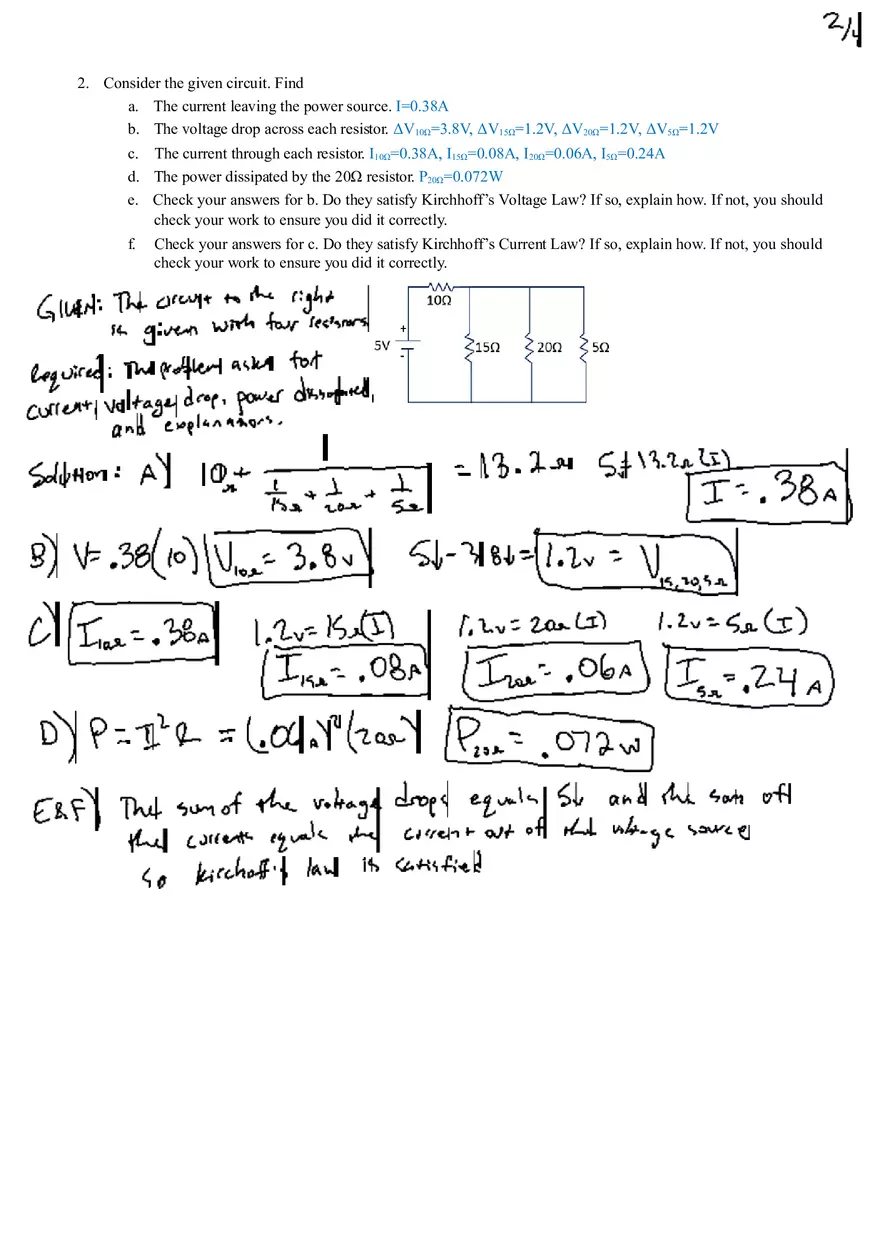 2/4
2. Consider the given circuit. Find
a. The current leaving the power source. I=0.38A
b. The voltage drop across each resistor. ΔV₁₀Ω=3.8V, ΔV₁₅Ω=1.2V, ΔV₂₀Ω=1.2V, ΔV₅Ω=1.2V
c. The current through each resistor. I₁₀Ω=0.38A, I₁₅Ω=0.08A, I₂₀Ω=0.06A, I₅Ω=0.24A
d. The power dissipated by the 20Ω resistor. P₂₀Ω=0.072W
e. Check your answers for b. Do they satisfy Kirchhoff's Voltage Law? If so, explain how. If not, you should
check your work to ensure you did it correctly.
f. Check your answers for c. Do they satisfy Kirchhoff's Current Law? If so, explain how. If not, you should
check your work to ensure you did it correctly.
Given: The circuit to the right
is given with four resistors
Required: The problem asks for
current, voltage drop, power dissipated,
and explanations.
10Ω
+
5V
-
15Ω 20Ω 5Ω
Solution: A) 10Ω + 1/(1/15Ω + 1/20Ω + 1/5Ω) = 13.2Ω 5=13.2Ω(I)
I = .38A
B) V= .38(10) V₁₀Ω = 3.8v 5v-3.8v= 1.2v = V₁₅,₂₀,₅Ω
C) I₁₀Ω = .38A 1.2v=15Ω(I) 1.2v=20Ω(I) 1.2v=5Ω(I)
I₁₅Ω = .08A I₂₀Ω = .06A I₅Ω = .24A
D) P = I²R = (.06A)²(20Ω) P₂₀Ω = .072w
E&F) The sum of the voltage drops equals 5v and the sum of
the currents equals the current out of the voltage source
so kirchoff's law is satisfied